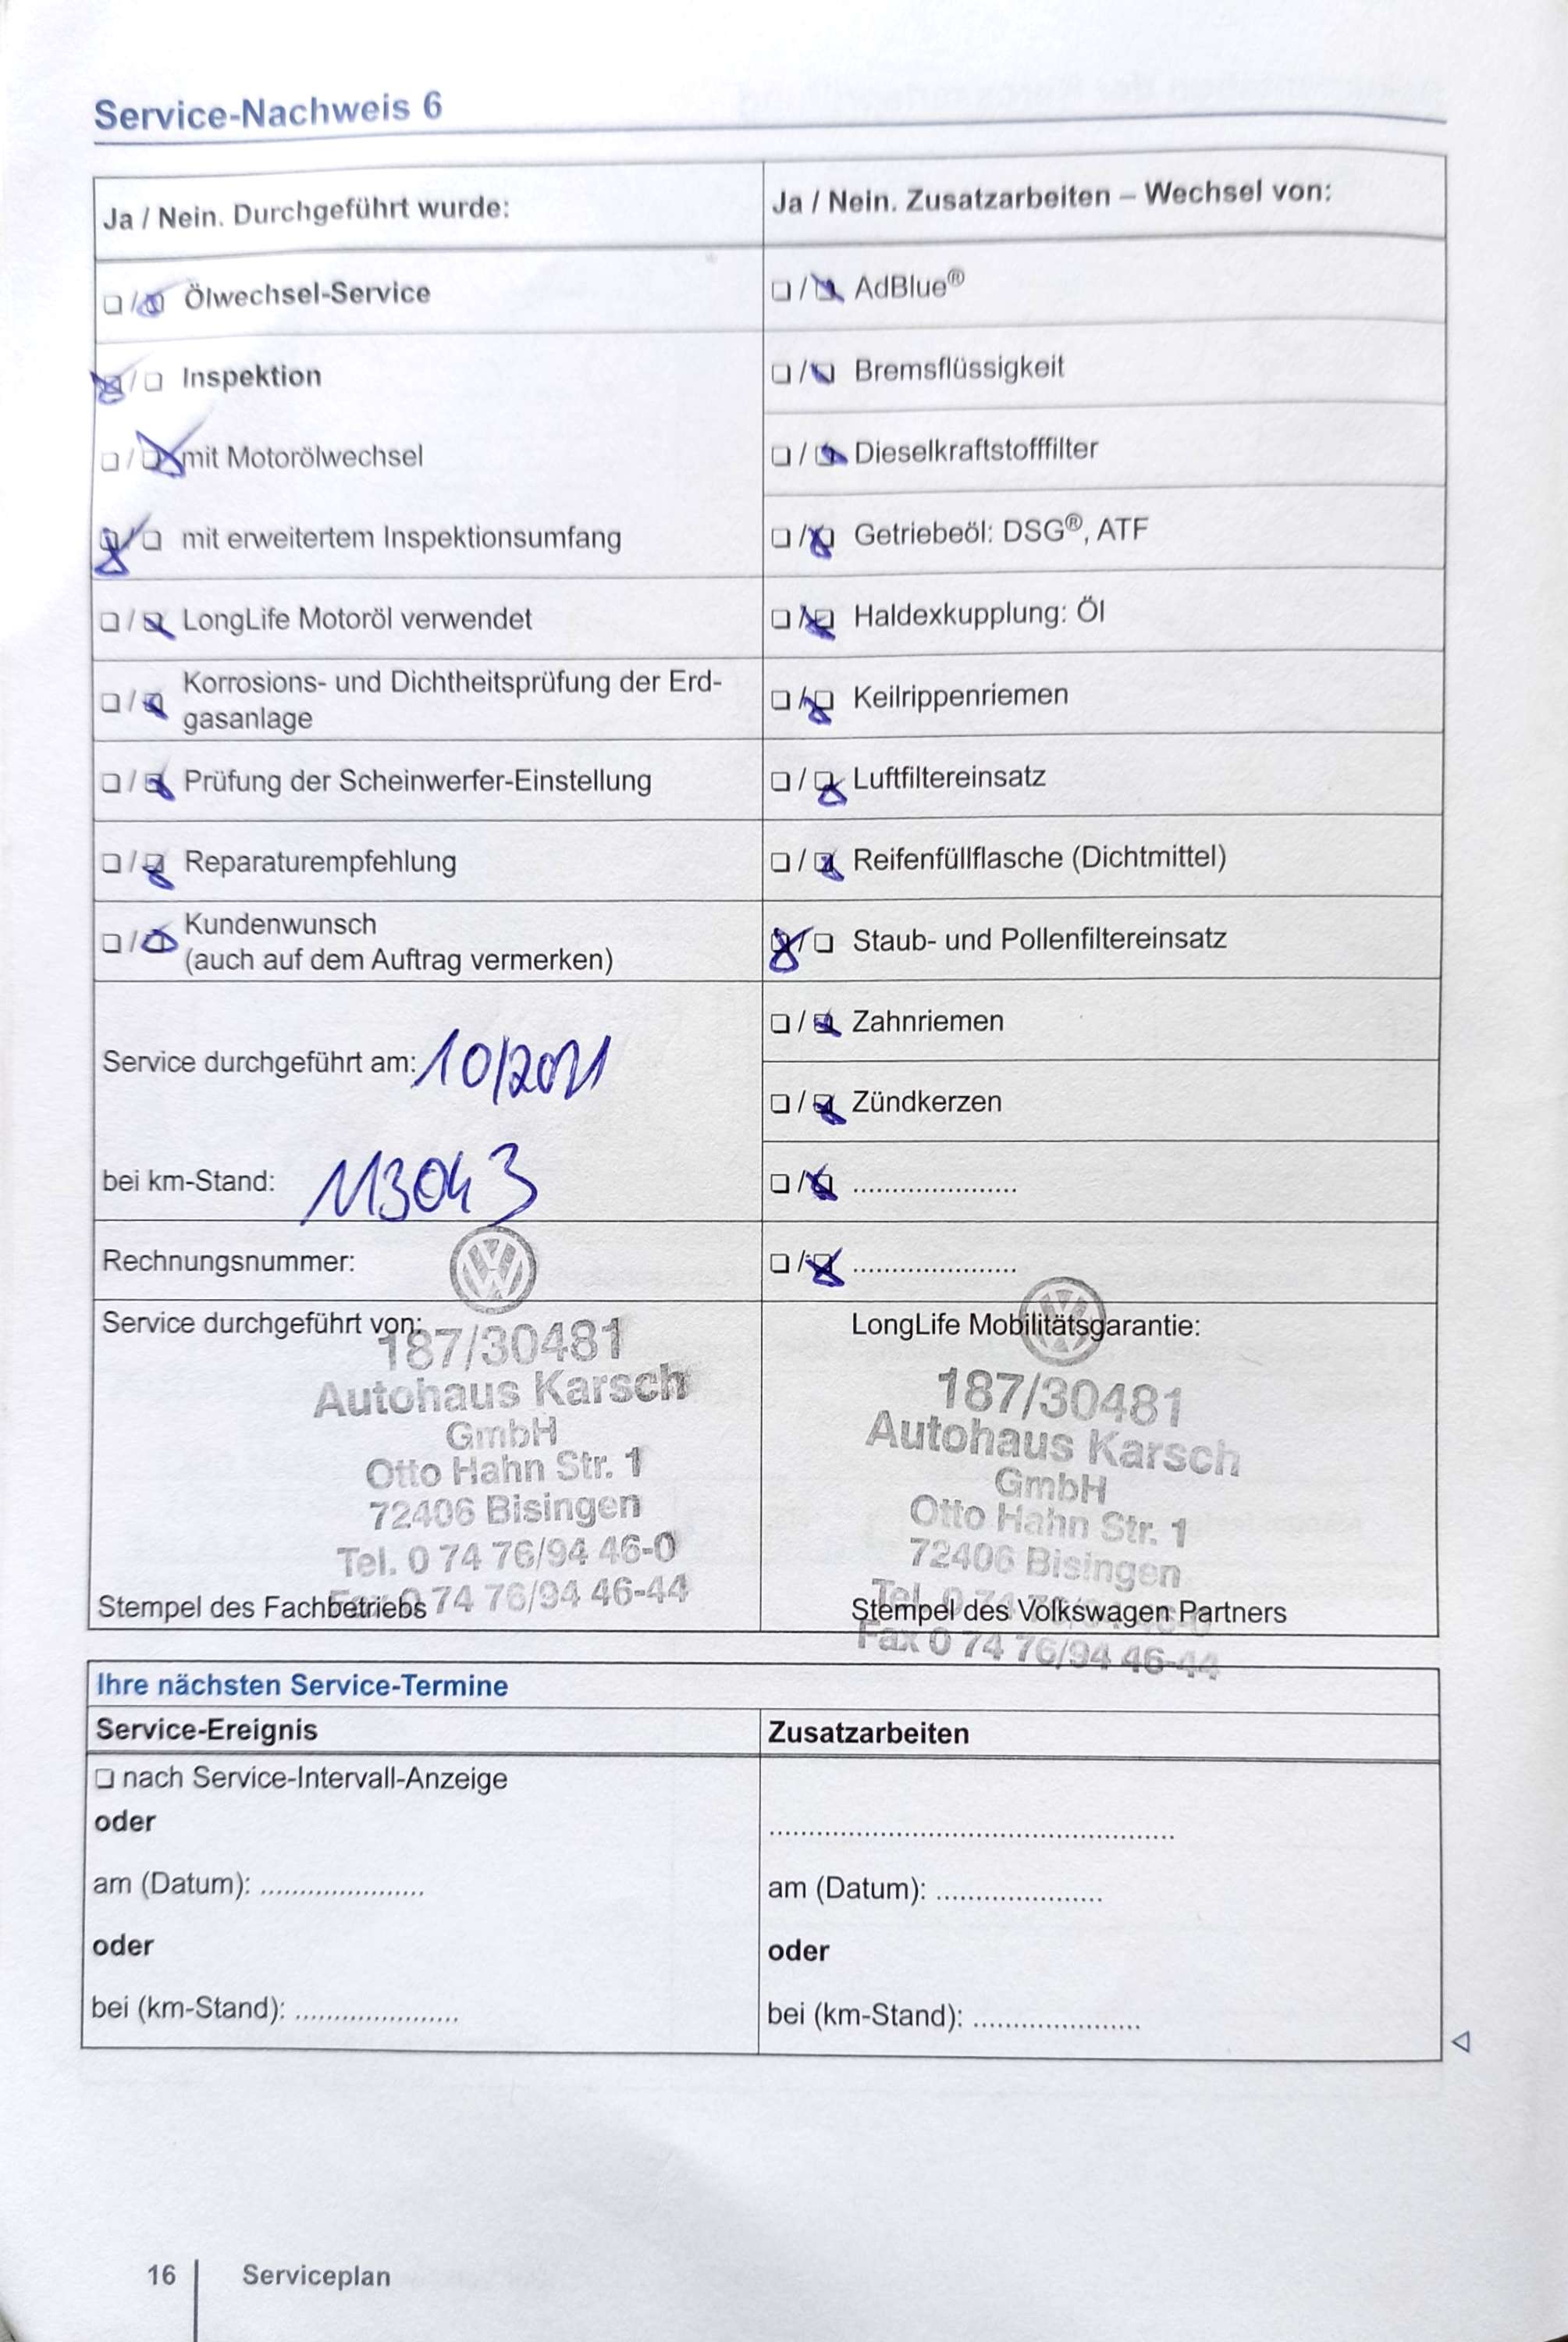 Service-Nachweis 6
Ja / Nein. Durchgeführt wurde:
❏ / ❏ Ölwechsel-Service
❏ / ❏ Inspektion
❏ / ❏ mit Motorölwechsel
❏ / ❏ mit erweitertem Inspektionsumfang
❏ / ❏ LongLife Motoröl verwendet
❏ / ❏ Korrosions- und Dichtheitsprüfung der Erd-
gasanlage
❏ / ❏ Prüfung der Scheinwerfer-Einstellung
❏ / ❏ Reparaturempfehlung
❏ / ❏ Kundenwunsch
(auch auf dem Auftrag vermerken)
Service durchgeführt am: 10/2021
bei km-Stand: 113043
Rechnungsnummer:
Service durchgeführt von:
187/30481
Autohaus Karsch
GmbH
Otto Hahn Str. 1
72406 Bisingen
Tel. 0 74 76/94 46-0
Fax 0 74 76/94 46-44
Stempel des Fachbetriebs
Ja / Nein. Zusatzarbeiten – Wechsel von:
❏ / ❏ AdBlue®
❏ / ❏ Bremsflüssigkeit
❏ / ❏ Dieselkraftstofffilter
❏ / ❏ Getriebeöl: DSG®, ATF
❏ / ❏ Haldexkupplung: Öl
❏ / ❏ Keilrippenriemen
❏ / ❏ Luftfiltereinsatz
❏ / ❏ Reifenfüllflasche (Dichtmittel)
❏ / ❏ Staub- und Pollenfiltereinsatz
❏ / ❏ Zahnriemen
❏ / ❏ Zündkerzen
❏ / ❏ .....................
❏ / ❏ .....................
LongLife Mobilitätsgarantie:
187/30481
Autohaus Karsch
GmbH
Otto Hahn Str. 1
72406 Bisingen
Tel. 0 74 76/94 46-0
Stempel des Volkswagen Partners
Fax 0 74 76/94 46-44
Ihre nächsten Service-Termine
Service-Ereignis
❏ nach Service-Intervall-Anzeige
oder
am (Datum): .....................
oder
bei (km-Stand): .....................
Zusatzarbeiten
....................................................
am (Datum): .....................
oder
bei (km-Stand): .....................
16 Serviceplan